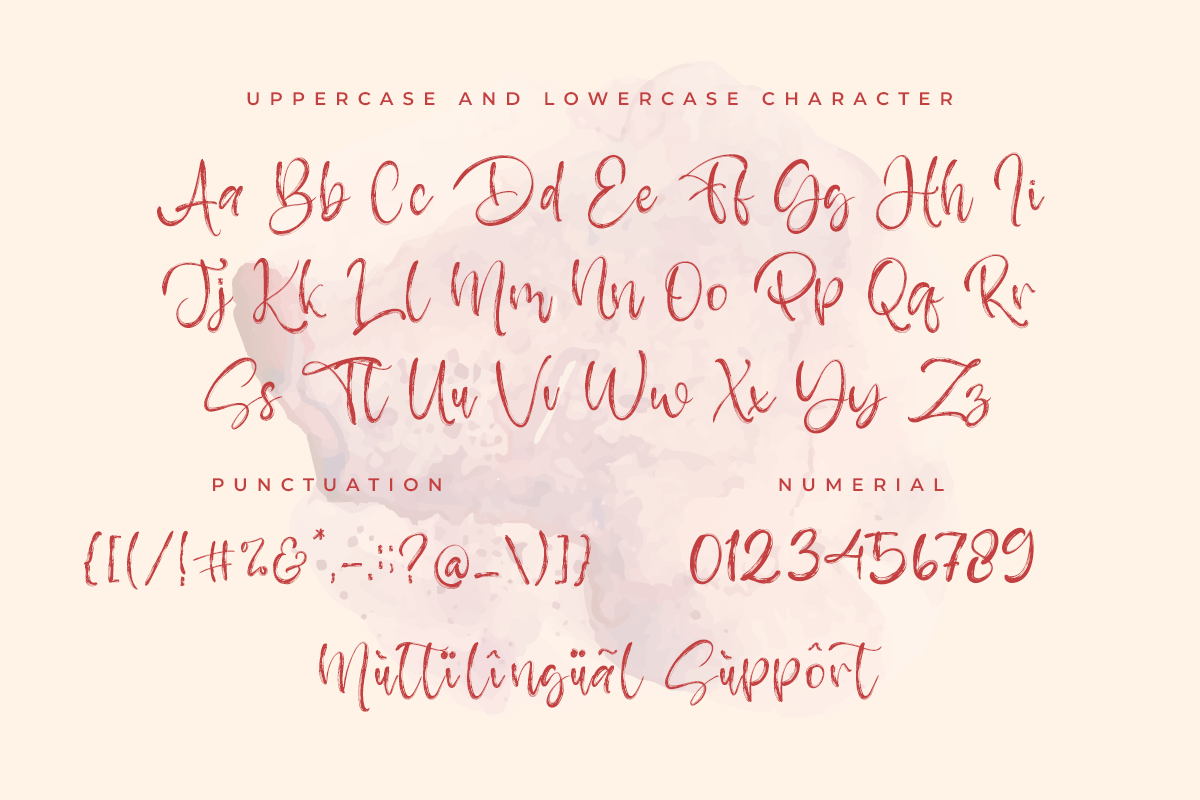 UPPERCASE AND LOWERCASE CHARACTER
Aa Bb Cc Dd Ee Ff Gg Hh Ii
Jj Kk Ll Mm Nn Oo Pp Qq Rr
Ss Tt Uu Vv Ww Xx Yy Zz
PUNCTUATION
NUMERIAL
{[(/!#%&*,-.:;?@_\)]}
0123456789
Mùttïlîngüãl Sùppôrt